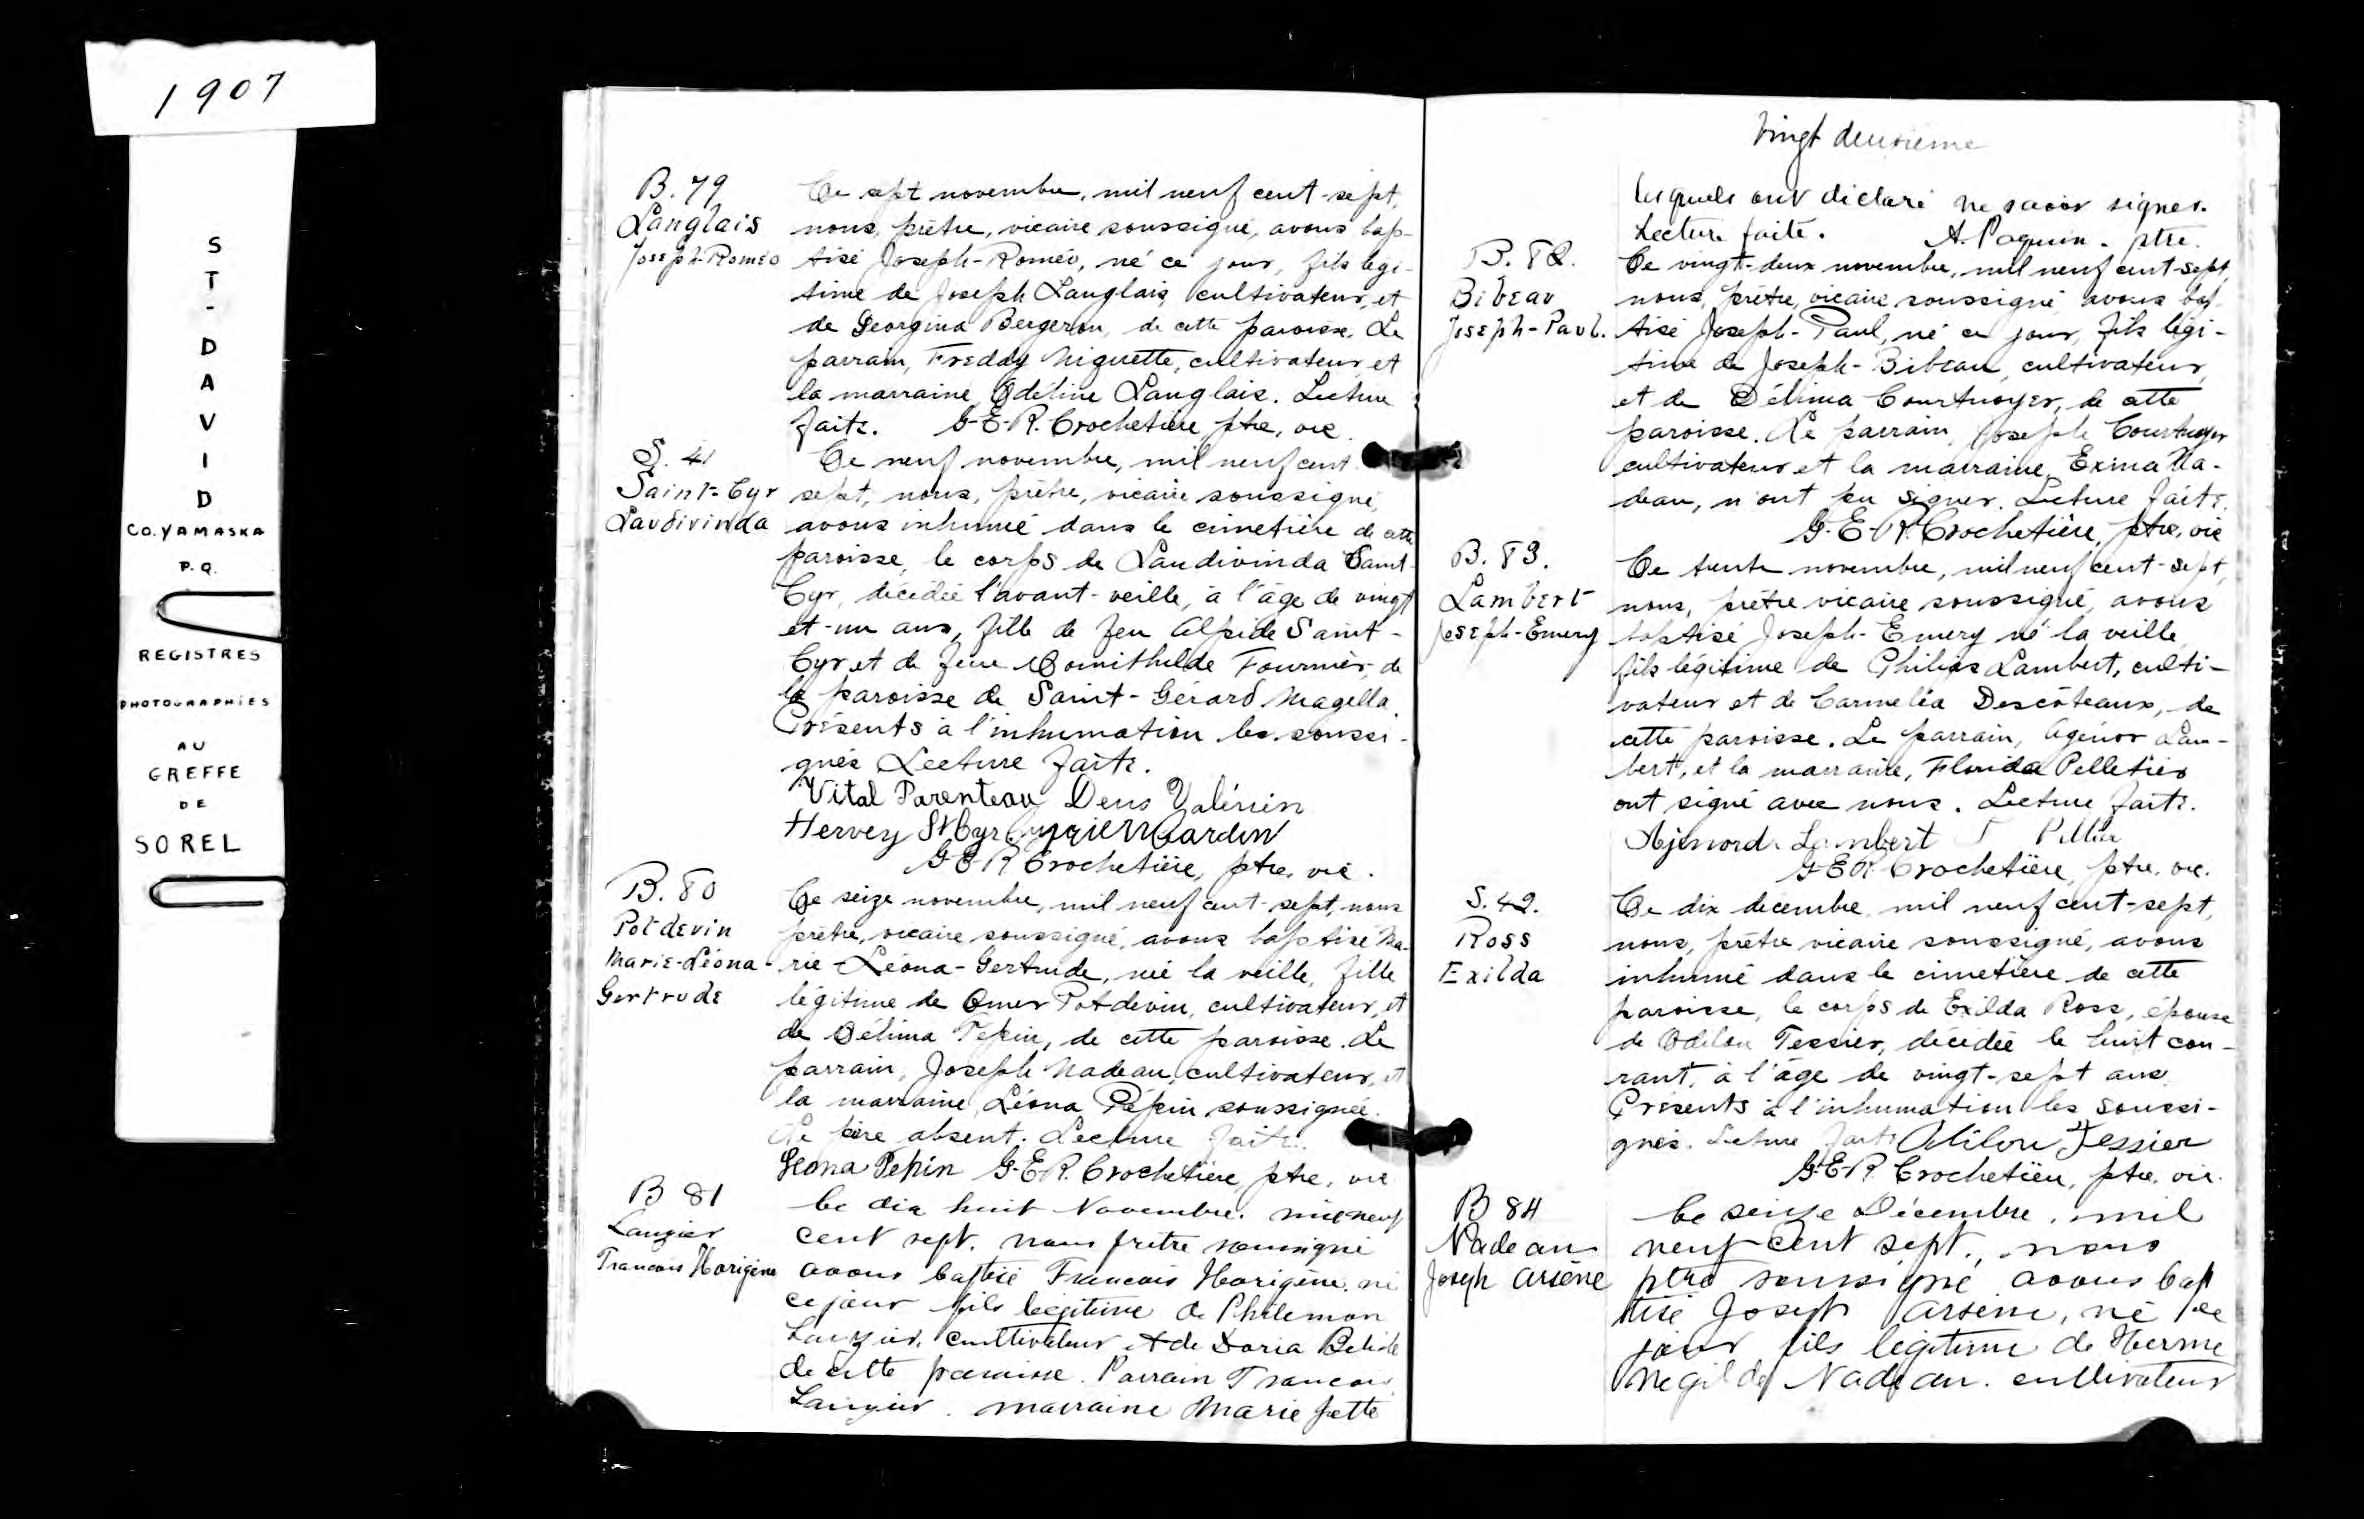 1907
S
T
-
D
A
V
I
D
CO. YAMASKA
P.Q.
REGISTRES
PHOTOGRAPHIES
AU
GREFFE
DE
SOREL
B. 79
Langlais
Joseph-Roméo
Ce sept novembre, mil neuf cent-sept,
nous, prêtre, vicaire soussigné, avons bap-
tisé Joseph-Roméo, né ce jour, fils légi-
time de Joseph Langlais, cultivateur, et
de Georgina Bergeron, de cette paroisse. Le
parrain, Freddy Niquette, cultivateur, et
la marraine, Odéline Langlais. Lecture
faite. G-E-R. Crochetière, ptre, vic.
S. 41
Saint-Cyr
Laudivinda
Ce neuf novembre, mil neuf cent
sept, nous, prêtre, vicaire soussigné,
avons inhumé dans le cimetière de cette
paroisse, le corps de Laudivinda Saint-
Cyr, décédée l'avant-veille, à l'âge de vingt
et-un ans, fille de feu Alpide Saint-
Cyr et de feue Domithilde Fournier, de
la paroisse de Saint-Gérard Magella.
Présents à l'inhumation les soussi-
gnés Lecture faite.
Vital Parenteau Denis Valérien
Hervey St Cyr Cardin
G E R Crochetière, ptre. vic.
B. 80
Potdevin
Marie-Léona-
Gertrude
Ce seize novembre, mil neuf cent-sept, nous
prêtre, vicaire soussigné, avons baptisé Ma-
rie-Léona-Gertrude, née la veille, fille
légitime de Omer Potdevin, cultivateur, et
de Délima Pepin, de cette paroisse. Le
parrain, Joseph Nadeau, cultivateur, et
la marraine, Léona Pépin soussignée.
Le père absent. Lecture faite.
Leona Pepin G-E-R. Crochetière, ptre, vic
B 81
Lauzier
Francois Horigène
Ce dix huit Novembre. mil neuf
cent sept. nous prêtre soussigné
avons baptisé Francois Horigène. né
ce jour fils légitime de Philemon
Lauzier. cultivateur et de Doria Belisle
de cette paroisse. Parrain Francois
Lauzier. marraine Marie Jetté
Vingt deuxième
lesquels ont déclaré ne savoir signer.
Lecture faite. A. Paquin. ptre.
B. 82.
Bibeau
Joseph-Paul.
Ce vingt-deux novembre, mil neuf cent-sept,
nous, prêtre, vicaire soussigné avons bap-
tisé Joseph-Paul, né ce jour, fils légi-
time de Joseph-Bibeau, cultivateur,
et de Délima Courtnoyer, de cette
paroisse. Le parrain, Joseph Courtnoyer
cultivateur et la marraine, Exina Na-
deau, n'ont pu signer. Lecture faite.
G-E-R. Crochetière, ptre, vic
B. 83.
Lambert
Joseph-Emery
Ce trente novembre, mil neuf cent-sept,
nous, prêtre vicaire soussigné, avons
baptisé Joseph-Emery né la veille
fils légitime de Philias Lambert, culti-
vateur et de Carmelia Descôteaux, de
cette paroisse. Le parrain, Agénor Lam-
bert, et la marraine, Florida Pelletier
ont signé avec nous. Lecture faite.
Ajénord. Lambert F
G E R Crochetière, ptre. vic.
S. 42.
Ross
Exilda
Ce dix decembre mil neuf cent-sept,
nous, prêtre vicaire soussigné, avons
inhumé dans le cimetière de cette
paroisse, le corps de Exilda Ross, épouse
de Odilon Tessier, décédée le huit cou-
rant, à l'âge de vingt-sept ans.
Présents à l'inhumation les soussi-
gnés. Lecture faite Odilon Tessier
G-E-R Crochetière, ptre. vic.
B 84
Nadeau
Joseph Arsène
Ce seize Décembre, mil
neuf cent sept, nous
ptre soussigné avons bap
tisé Joseph Arsène, né ce
jour fils légitime de Herme
negilde Nadeau. cultivateur